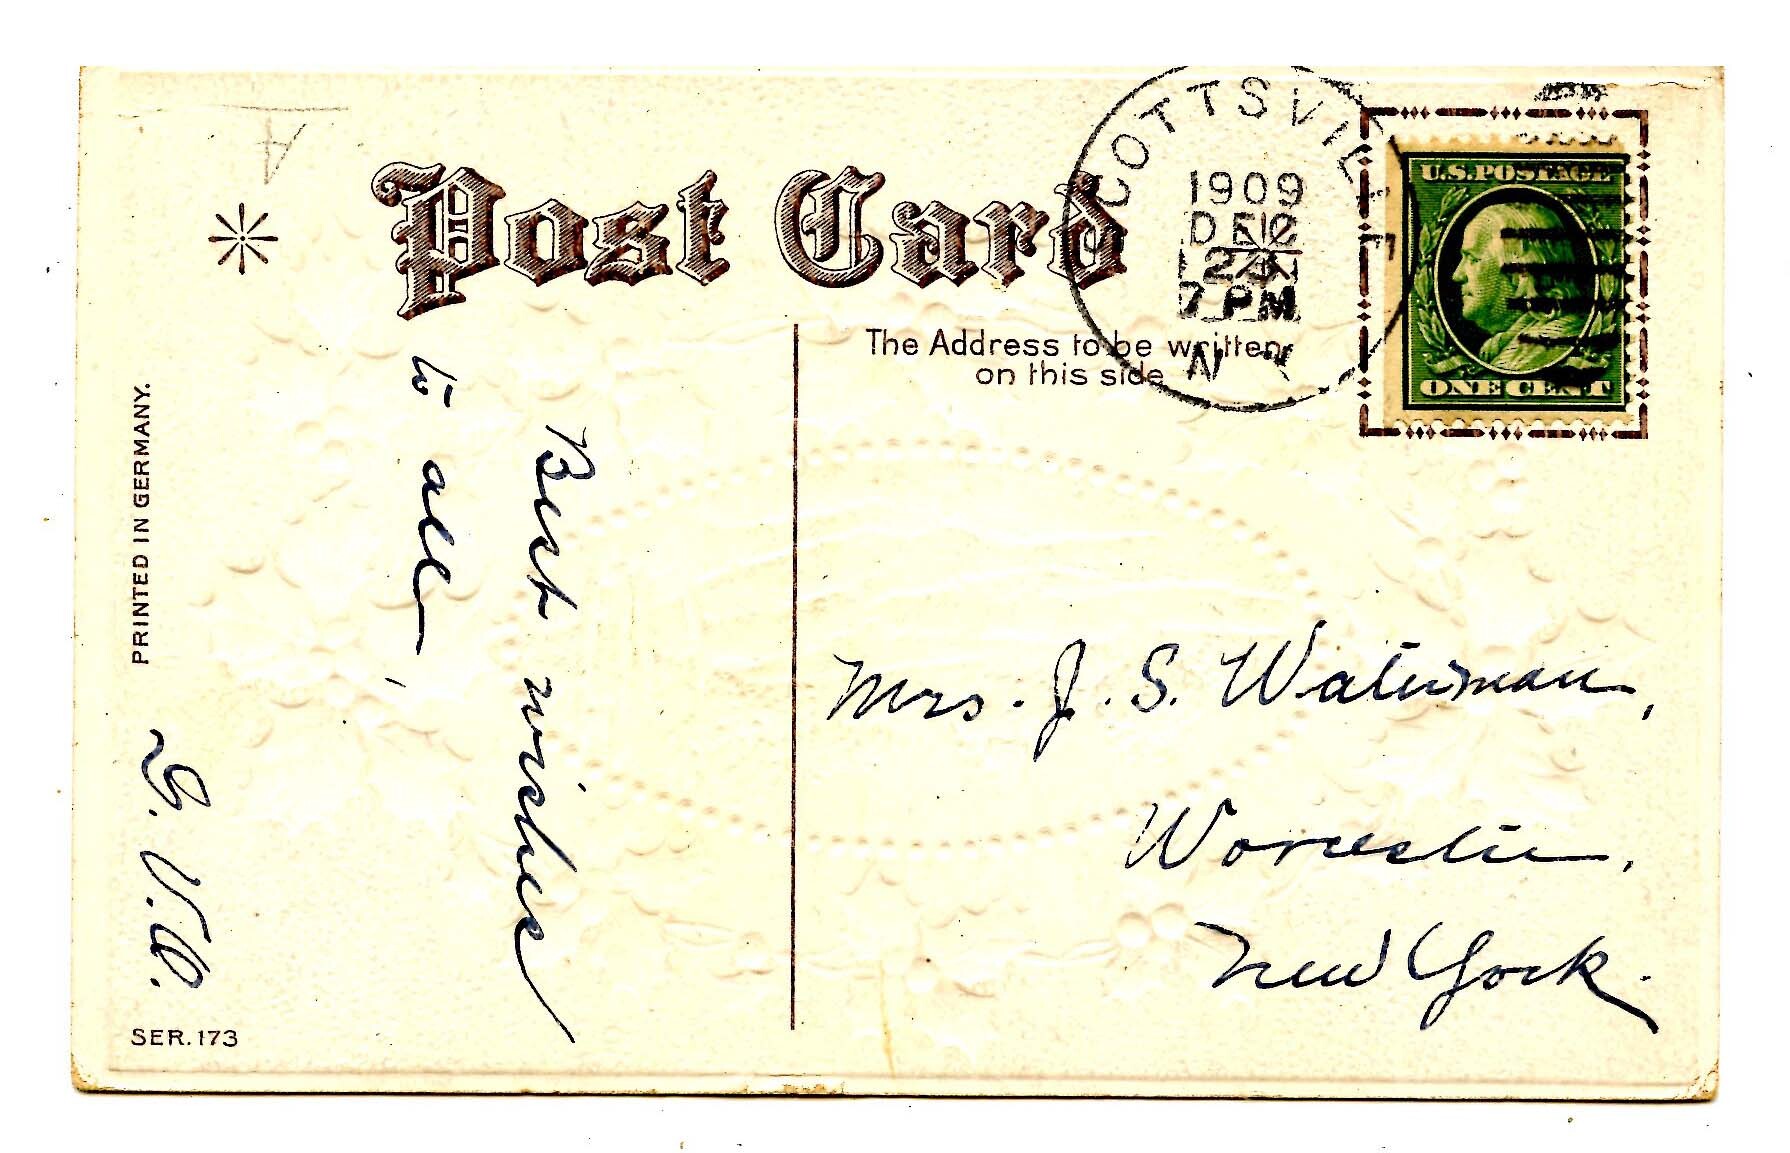 Post Card
The Address to be written
on this side
COTTSVILLE
1909
DEC
7 PM
N Y
U.S. POSTAGE
ONE CENT
Best wishes
to all,
Mrs. J. S. Waterman,
Worcester,
New York.
PRINTED IN GERMANY.
SER. 173